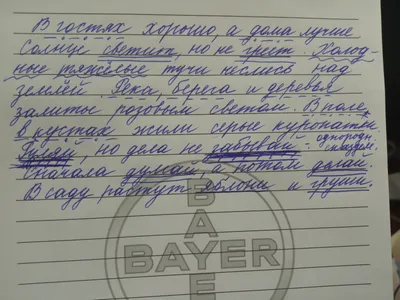 В гостях хорошо, а дома лучше
Солнце светит, но не греет. Холод-
ные тяжёлые тучи неслись над
землёй. Река, берега и деревья
залиты розовым светом. В поле,
в кустах жили серые куропатки.
Гуляй, но дела не забывай - однородн.
сказуем.
Сначала думай, а потом делай.
В саду растут яблони и груши.
BAYER
BAYE